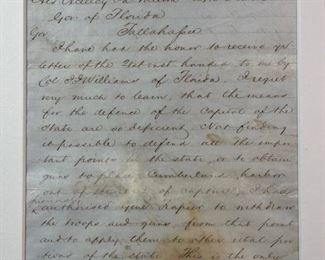 His Excellency
Gov of Florida
Tallahassee
Gov
I have had the honor to receive yr
letter of the 21st inst handed to me by
Col J J Williams of Florida. I regret
very much to learn, that the means
for the defence of the Capital of the
State are so deficient. Not finding
it possible to defend all the impor
tant points in the state, or to obtain
guns to place Cumberland harbor
out of of capture, I had
authorised Genl Trapier to withdraw
the troops and guns, from that point
and to apply them to other vital por
tions of the State. This is the only